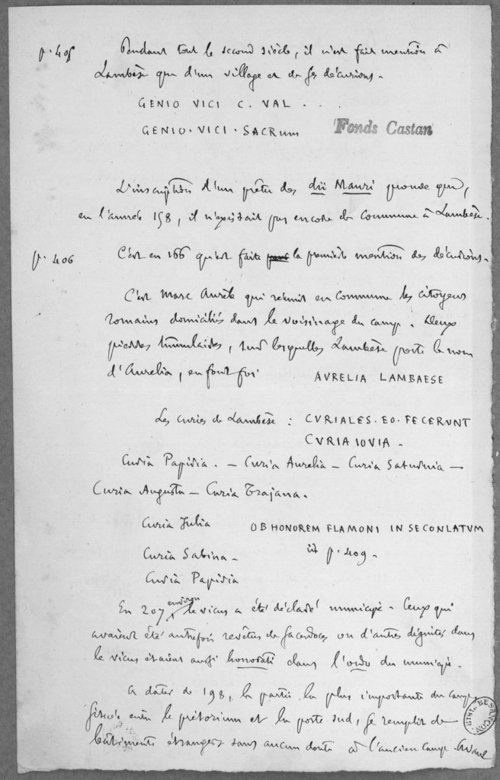 p. 405 Pendant tout le second siècle, il n'est fait mention à
Lambèse que d'un village et de ses décurions.
GENIO VICI C. VAL . . .
GENIO. VICI. SACRUM
Fonds Castan
L'inscription d'un prêtre des dii Mauri prouve que,
en l'année 158, il n'existait pas encore de commune à Lambèse.
p. 406 C'est en 166 qu'est faite la première mention des décurions.
C'est Marc Aurèle qui réunit en commune les citoyens
romains domiciliés dans le voisinage du camp. Deux
pierres tumulaires, sur lesquelles Lambèse porte le nom
d'Aurelia, en font foi AVRELIA LAMBAESE
Les curies de Lambèse : CVRIALES. EO. FECERVNT
CVRIA IOVIA -
Curia Papiria. - Curia Aurelia - Curia Saturnia -
Curia Augusta - Curia Trajana.
Curia Julia OB HONOREM FLAMONI IN SE CONLATVM
Curia Sabina - p. 409 -
Curia Papiria
En 207 environ, le vicus a été déclaré municipe. Ceux qui
avaient été autrefois revêtus de sacerdoces ou d'autres dignités dans
le vicus étaient aussi honorati dans l'ordo du municipe.
A dater de 198, la partie la plus importante du camp,
située entre le prétorium et la porte sud, se remplit de
bâtiments étrangers sans aucun doute à l'ancien camp. Avant